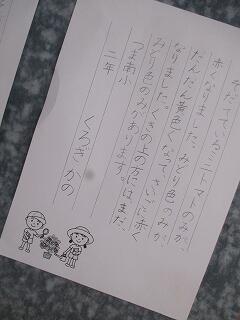 そだてているミニトマトのみが、
赤くなりました。みどり色のみが、
だんだん黄色くなって、さいごに赤く
なりました。
みどり色のみがあります。くきの上の方には、まだ、
つま南小
二年
くろぎかの